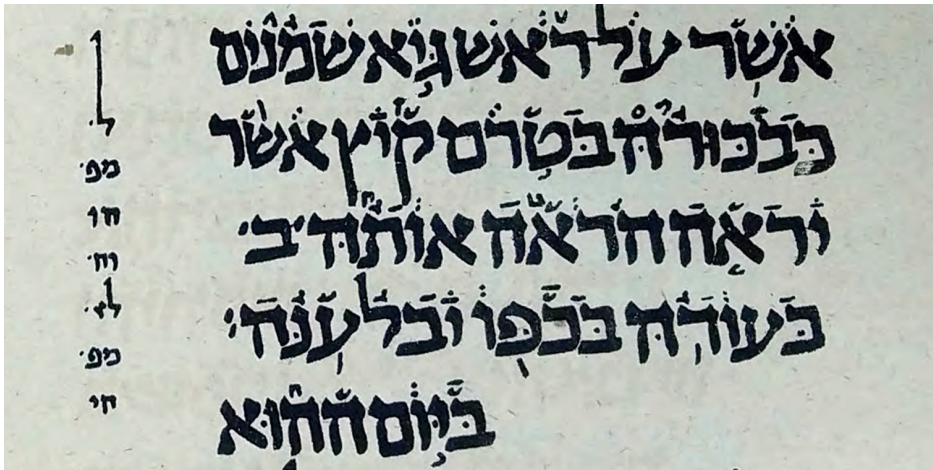 אשר על ראש גיא שמנים
כבכורה בטרם קיץ אשר
יראה הראה אותה ׳ב׳
בעודה בכפו יבלענה׃
ביום ההוא
ל׳
מפ׳
מפ׳